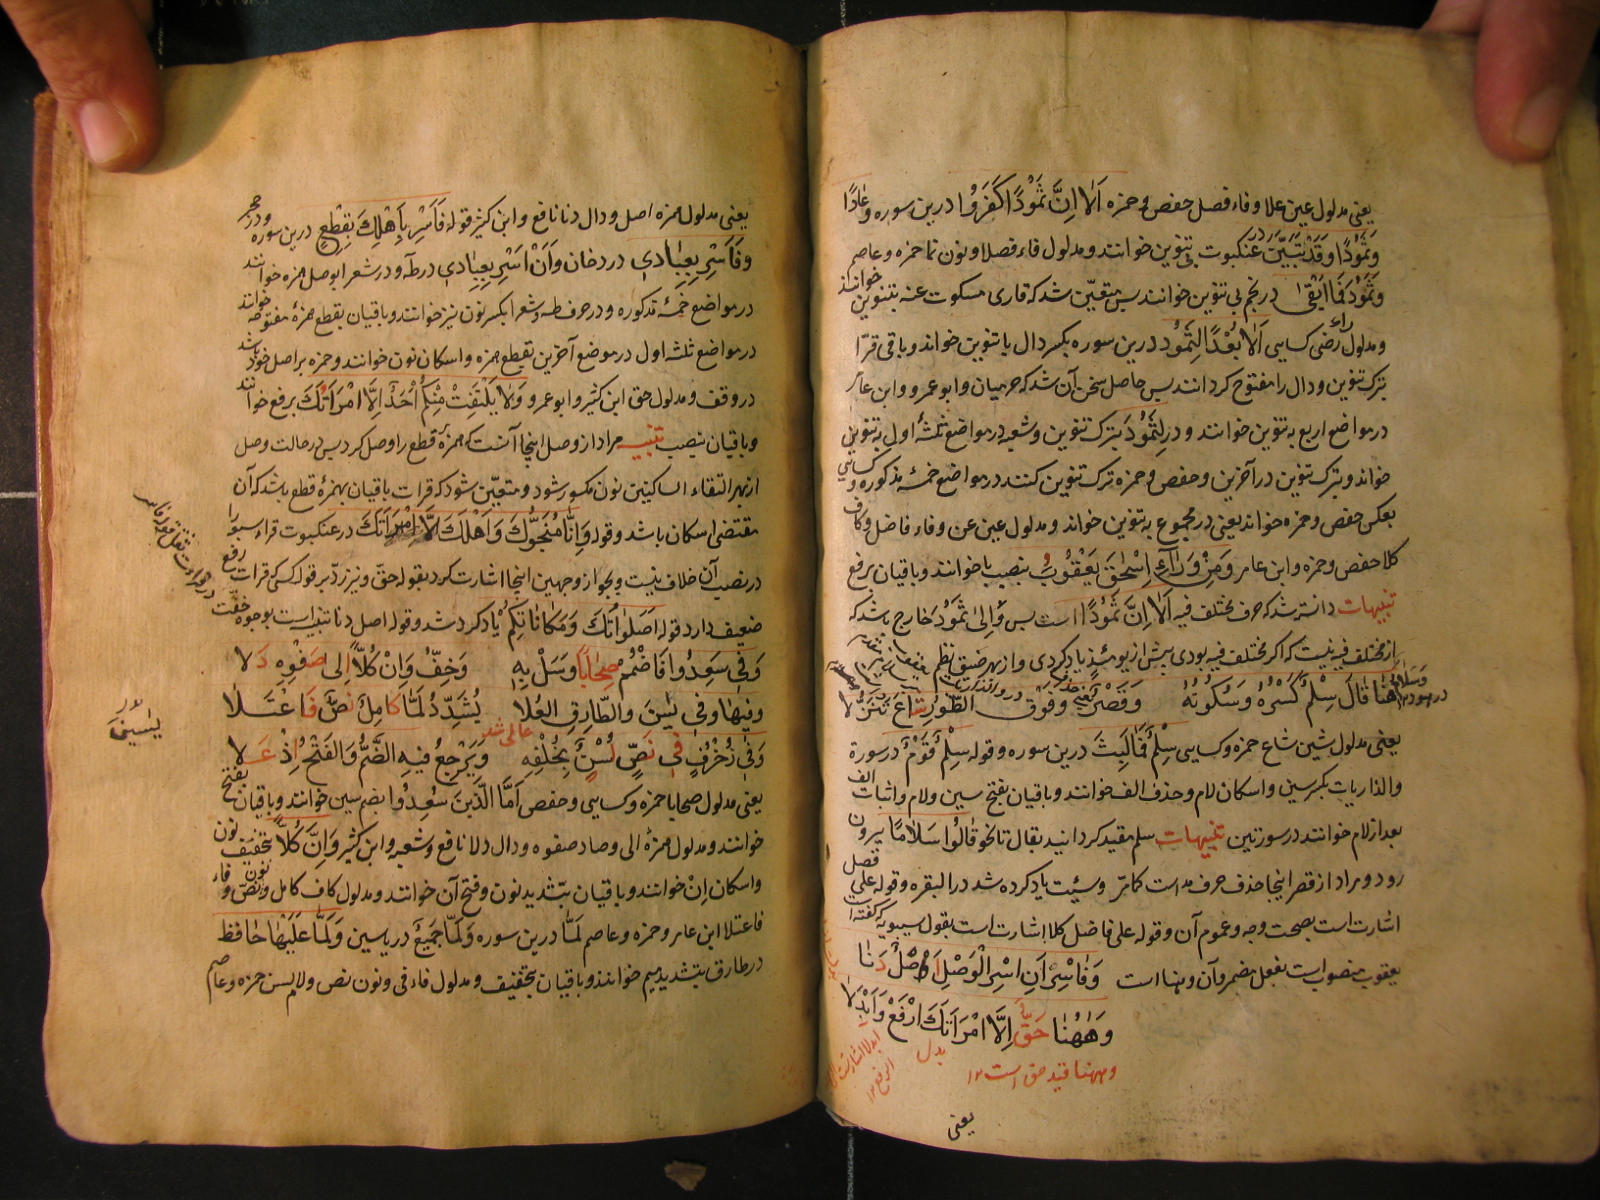 یعنی مدلول عین علا و فاء فصل حفص و حمزه اَلَا اِنَّ ثَمُودًا كَفَرُوا درین سوره وَعَادًا
وَثَمُودًا وَقَدْ تَبَيَّنَ در عنکبوت بی تنوین خوانند و مدلول فاء فصلا و نون نما حمزه و عاصم
وَثَمُودَ فَمَا اَبْقٰی در نجم بی تنوین خوانند پس متعین شد که قاری مسکوت عنه بتنوین خوانند
و مدلول راء رضی کسایی اَلَا بُعْدًا لِثَمُودَ درین سوره بکسر دال با تنوین خواند و باقی قرّا
بترک تنوین و دال را مفتوح کردانند پس حاصل سخن آن شد که حرمیان و ابو عمرو و ابن عامر
در مواضع اربع به تنوین خوانند و در لِثَمُودَ بترک تنوین و شعبه در مواضع ثلثهٔ اول به تنوین
خواند و بترک تنوین در آخرین و حفص و حمزه ترک تنوین کنند در مواضع خمسهٔ مذکوره و کسایی
بعکس حفص و حمزه خواند یعنی در مجموع به تنوین خواند و مدلول عین عن و فاء فاضل و کاف
کلا حفص و حمزه و ابن عامر وَمِنْ وَرَاءِ اِسْحٰقَ يَعْقُوبَ بنصب با خوانند و باقیان برفع
تنبیهات دانسته شد که حرف مختلف فیه اَلَا اِنَّ ثَمُودًا است پس وَاِلٰى ثَمُودَ خارج باشد که
از مختلف فیه نیست که اکر مختلف فیه بودی پیش از یومئذ یاد کردی و از بهر ضیق نظم
هُنَا قَالَ سِلْمٌ كَسْرُهُ وَسُكُونُهُ وَقَصْرٌ وَفَوْقَ الطُّورِ شَاعَ تَنَزُّلَا
یعنی مدلول شین شاع حمزه و کسایی سِلْمٌ فَمَا لَبِثَ درین سوره و قوله سِلْمٌ قَوْمٌ در سورهٔ
والذاریات بکسر سین و اسکان لام و حذف الف خوانند و باقیان بفتح سین و لام و اثبات الف
بعد از لام خوانند در سورتین تنبیهات سلم مقید کردانید بقال تا نحو قَالُوا سَلَامًا بیرون
رود و مراد از قصر اینجا حذف حرف مد است کما مرّ و سیئت یاد کرده شد در البقره و قوله علی فصل
اشارت است بصحت وجه و عموم آن و قوله علی فاضل کلا اشارت است بقول سیبویه که کفته است
یعقوب منصوب است بفعل مضمر و آن وهبنا است وَفَاسْرِ اَنِ اسْرِ الْوَصْلُ اَصْلٌ دَنَا
وَهٰهُنَا حَقٌّ اِلَّا امْرَاَتَكَ ارْفَعْ وَاَبْدِلَا
وههنا قید حق است ۱۲
بدل
یعنی
یعنی مدلول همزه اصل و دال دنا نافع و ابن کثیر قوله فَاَسْرِ بِاَهْلِكَ بِقِطْعٍ درین سوره و در حجر
وَفَاَسْرِ بِعِبَادِی در دخان وَاَنْ اَسْرِ بِعِبَادِی در طه و در شعرا بوصل همزه خوانند
در مواضع خمسهٔ مذکوره و در حرف طه و شعرا بکسر نون نیز خوانند و باقیان بقطع همزهٔ مفتوحه خوانند
در مواضع ثلثه اول در موضع آخرین بقطع همزه و اسکان نون خوانند و حمزه بر اصل خود باشد
در وقف و مدلول حق ابن کثیر و ابو عمرو وَلَا يَلْتَفِتْ مِنْكُمْ اَحَدٌ اِلَّا امْرَاَتُكَ برفع خوانند
و باقیان بنصب تنبیه مراد از وصل اینجا آنست که همزهٔ قطع را وصل کرد پس در حالت وصل
از بهر التقاء الساکنین نون مکسور شود و متعین شود که قرات باقیان بهمزهٔ قطع باشد که آن
مقتضی اسکان باشد و قوله وَاِنَّا مُنَجُّوكَ وَاَهْلَكَ اِلَّا امْرَاَتَكَ در عنکبوت قراء سبعه را
در نصب آن خلاف نیست و بجواز وجهین اینجا اشارت کرد بقوله حق و نیز ردّ بر قول کسی که قرات رفع
ضعیف دارد قوله اَصَلَوَاتُكَ وَمَكَانَاتِكُمْ یاد کرده شد و قوله اصل دنا تنبیه است بوجوه خفّت
وَفِي سَعِدُوا فَاضْمُمْ صِحَابًا وَسَلْ بِهِ وَخِفُّ وَاِنْ كُلًّا اِلٰى صَفْوِهِ دَلَا
وَفِيهَا وَفِي يٰسٓ وَالطَّارِقِ الْعُلَا يُشَدِّدُ لَمَّا كَامِلٌ نَصَّ فَاعْتَلَا
وَفِي زُخْرُفٍ فِي نَصِّ لُسْنٍ بِخُلْفِهِ وَيَرْجِعُ فِيهِ الضَّمُّ وَالْفَتْحُ اِذْ عَلَا
یعنی مدلول صحابا حمزه و کسایی و حفص اَمَّا الَّذِينَ سُعِدُوا بضم سین خوانند و باقیان بفتح
خوانند و مدلول همزهٔ الی و صاد صفوه و دال دلا نافع و شعبه و ابن کثیر وَاِنْ كُلًّا بتخفیف نون
و اسکان اِنْ خوانند و باقیان بتشدید نون و فتح آن خوانند و مدلول کاف کامل و نون نص و فاء
فاعتلا ابن عامر و حمزه و عاصم لَمَّا درین سوره وَلَمَّا جَمِيعٌ در یاسین وَلَمَّا عَلَيْهَا حَافِظٌ
در طارق بتشدید میم خوانند و باقیان بتخفیف و مدلول فاء فی و نون نص و لام لسن حمزه و عاصم